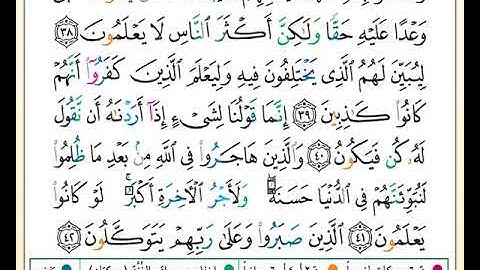 وَعْدًا عَلَيْهِ حَقًّا وَلَٰكِنَّ أَكْثَرَ ٱلنَّاسِ لَا يَعْلَمُونَ ٣٨
لِيُبَيِّنَ لَهُمُ ٱلَّذِى يَخْتَلِفُونَ فِيهِ وَلِيَعْلَمَ ٱلَّذِينَ كَفَرُوٓا۟ أَنَّهُمْ
كَانُوا۟ كَٰذِبِينَ ٣٩ إِنَّمَا قَوْلُنَا لِشَىْءٍ إِذَآ أَرَدْنَٰهُ أَن نَّقُولَ
لَهُۥ كُن فَيَكُونُ ٤٠ وَٱلَّذِينَ هَاجَرُوا۟ فِى ٱللَّهِ مِنۢ بَعْدِ مَا ظُلِمُوا۟
لَنُبَوِّئَنَّهُمْ فِى ٱلدُّنْيَا حَسَنَةً وَلَأَجْرُ ٱلْءَاخِرَةِ أَكْبَرُ لَوْ كَانُوا۟
يَعْلَمُونَ ٤١ ٱلَّذِينَ صَبَرُوا۟ وَعَلَىٰ رَبِّهِمْ يَتَوَكَّلُونَ ٤٢